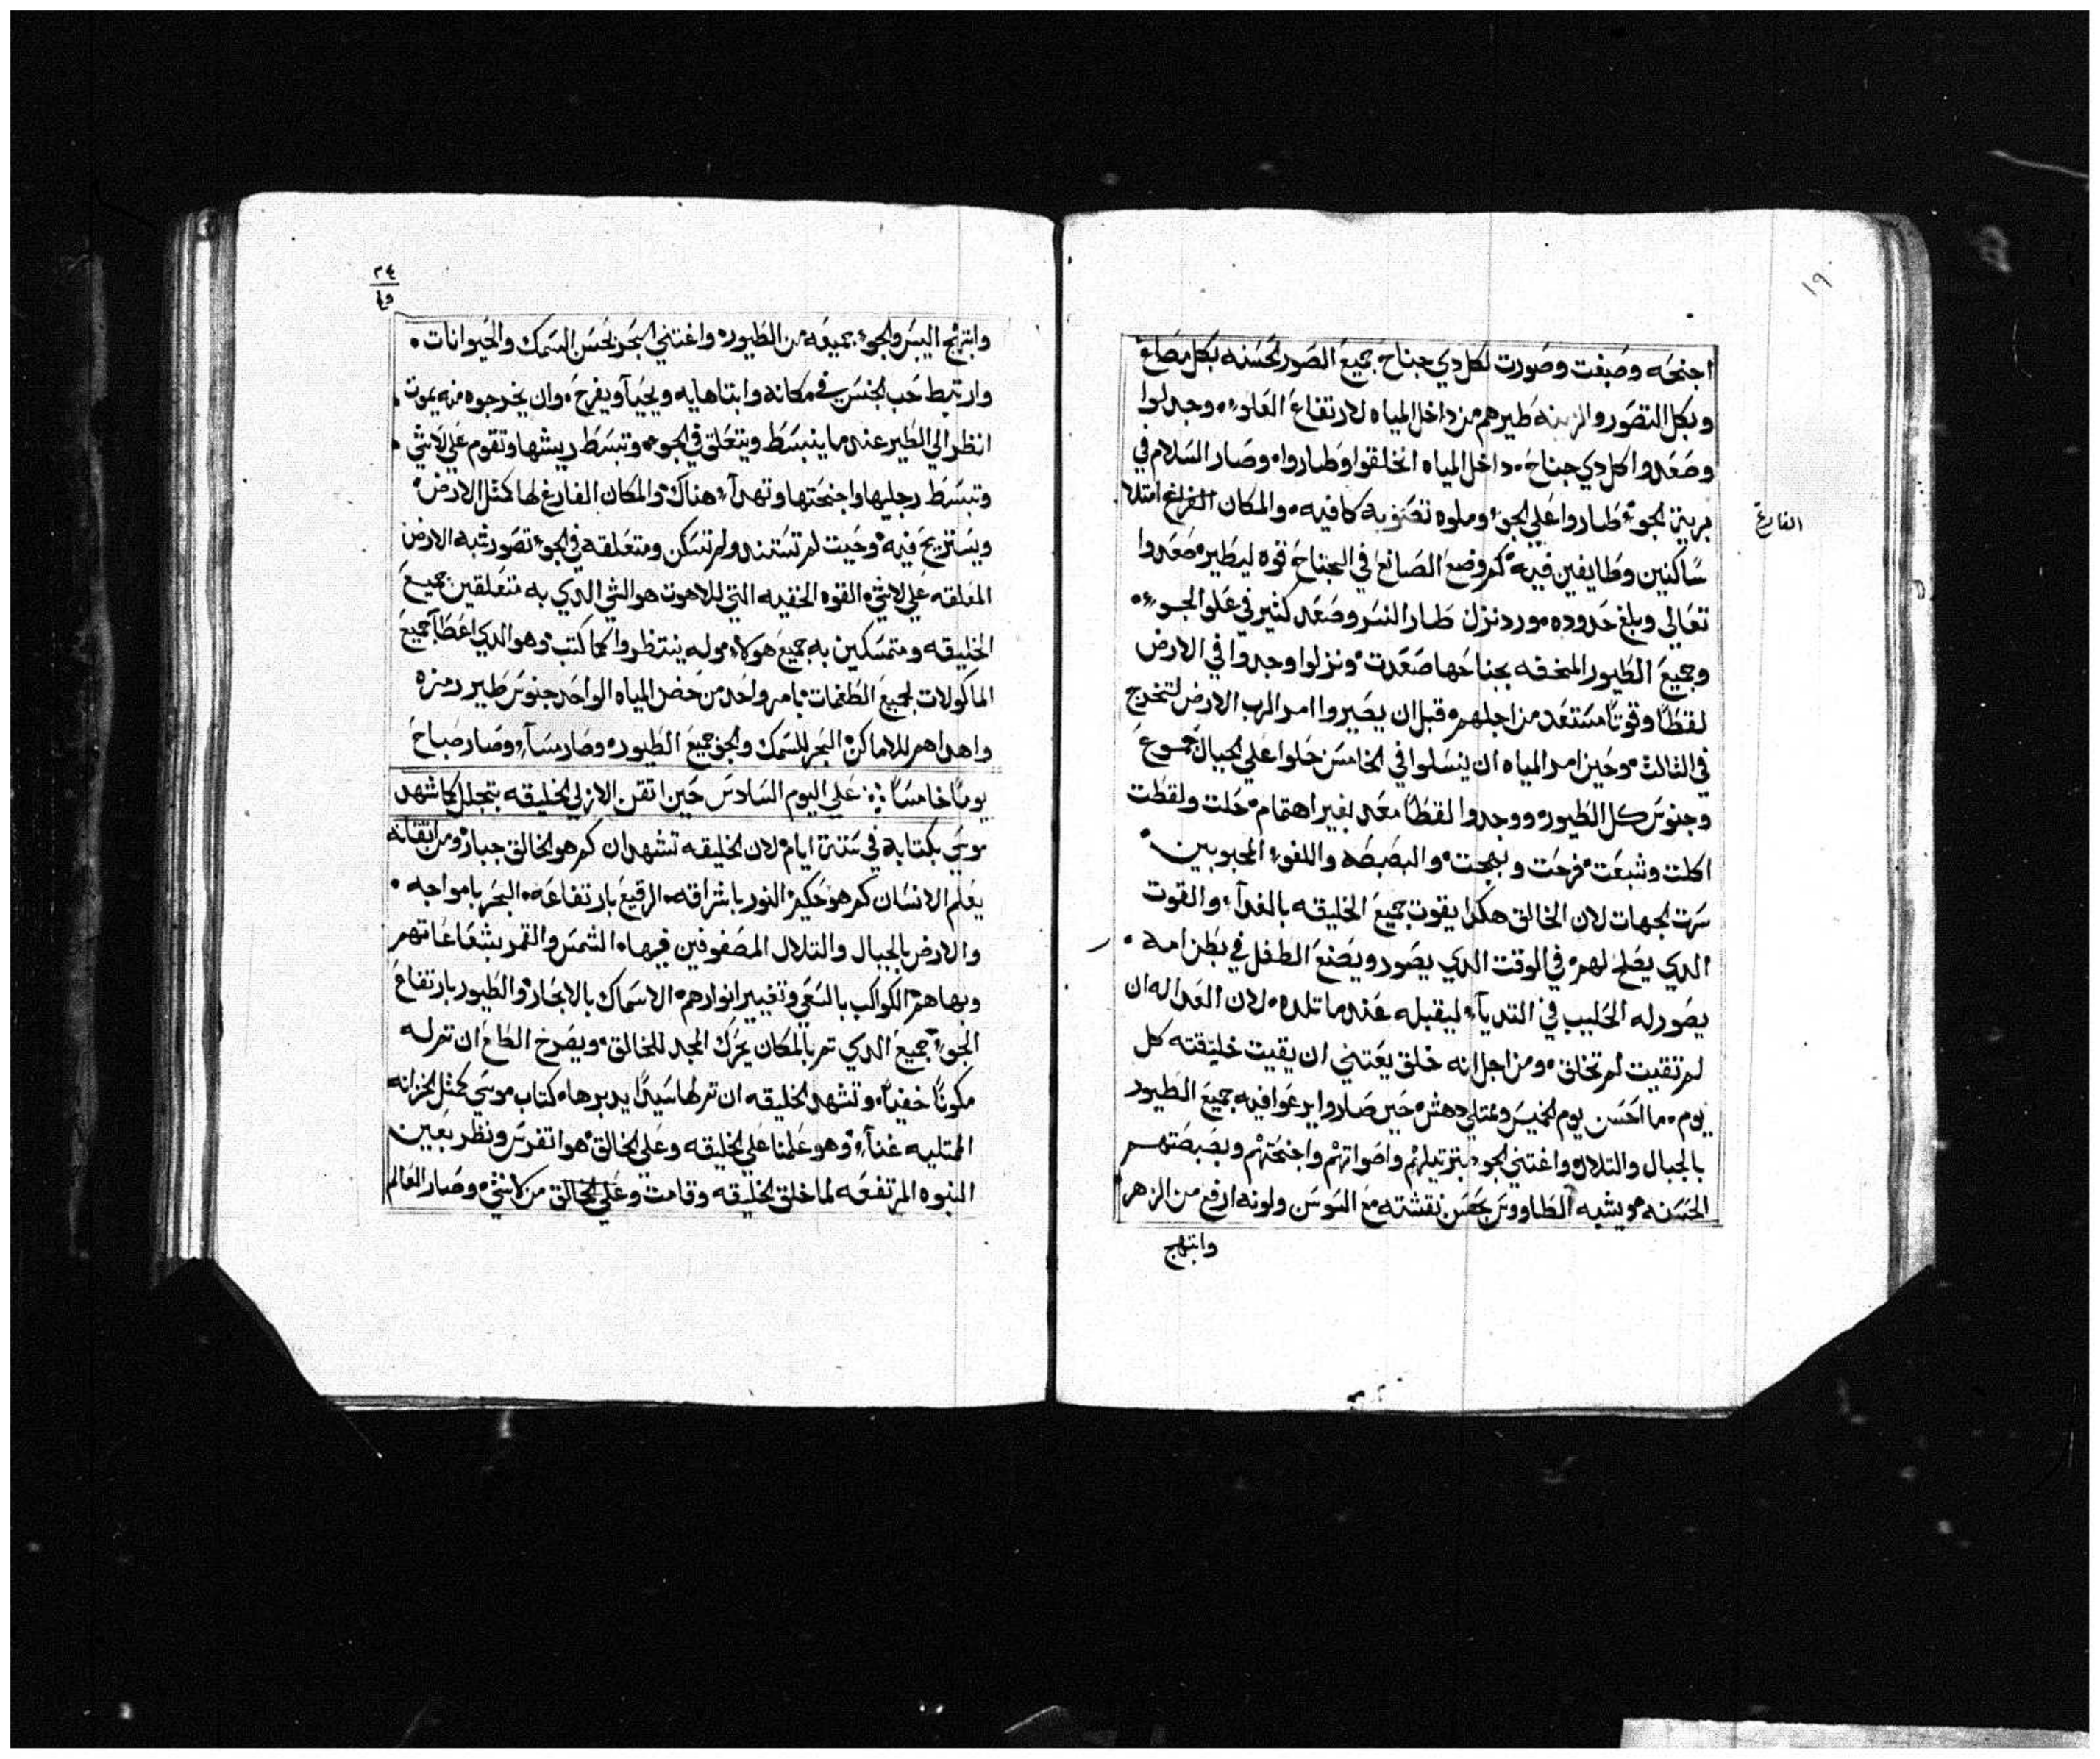 ١٩
اجنحه وصبغت وصورت لكل دي جناح جميع الصور الحسنه بكل مصاغ
وبكل التصور والزينه طيرهم من داخل المياه لارتفاع العلوء وجدلوا
وصعدوا كل دي جناح داخل المياه اتخلقوا وطاروا وصار السلام في
برية الجوء طاروا علي الجوء وملوه تصنويه كافيه والمكان الفراغ امتلا
الفارغ
ساكنين وطايفين فيه كم وضع الصانع في الجناح قوه ليطير صعدوا
تعالي وبلغ حدوده مورد نزل طار النسر وصعد كتير في علو الجوء
وجميع الطيور المنحفه بجناحها صعدت ونزلوا وجدوا في الارض
لقطاً وقوتاً مستعد من اجلهم قبل ان يصيروا امر الرب الارض لتخرج
في التالت وحين امر المياه ان ينسلوا في الخامس حلوا علي الجبال جموع
وجنوس كل الطيور ووجدوا لقطاً معد بغير اهتمام حلت ولقطت
اكلت وشبعت فرحت وبهجت والبصبصه واللفوء المحبوبين
سرت لجهات لان الخالق هكدا يقوت جميع الخليقه بالغدآء والقوت
الدي يصلح لهم في الوقت الدي يصور ويصنع الطفل في بطن امه
يصور له الحليب في التديآء ليقبله عندما تلده لان الغدا له ان
لم تقيت لم تخلق ومن اجل انه خلق يعتني ان يقيت خليقته كل
يوم ما احسن يوم الخميس وممتلي دهش حين صاروا يرعوا فيه جميع الطيور
بالجبال والتلال واغتني الجوء بترتيلهم واصواتهم واجنحتهم وبصبصتهم
الحسنه ويشبه الطاووس بحسن نقشته مع السوسن ولونه ارفع من الزهر
وابتهج
٢٤
وابتهج اليبس والجوء جميعه من الطيور واغتني البحر بحسن السمك والحيوانات
وارتبط حب الجنس في مكانه وابتاهايه ويحيآ ويفرح وان يخرجوه منه يموت
انظر الي الطير عندما ينبسط ويتعلق في الجوء وتبسط ريشها وتقوم علي لاشي
وتبسط رجليها واجنحتها وتهدآء هناك والمكان الفارغ لها كمثل الارض
ويستريح فيه وحيت لم تستند ولم تسكن ومتعلقه في الجوء تصور شبه الارض
المعلقه علي لاشي القوه الخفيه التي للاهوت هو الشي الدي به متعلقين جميع
الخليقه ومتمسكين به جميع هولاء وله ينتظروا كما كتب وهو الدي اعطا جميع
الماكولات لجميع الطغمات بامر واحد من حضن المياه الواحد جنوس طير رمزه
واهداهم للاماكن البحر للسمك والجو جميع الطيور وصار مسآء وصار صباح
يوماً خامساً علي اليوم السادس حين اتقن الازلي الخليقه بتجلل كما شهد
موسي بكتابه في ستة ايام لان الخليقه تشهد ان كم هو الخالق جبار ومن اتقانه
يعلم الانسان كم هو حكيم النور باشراقه الرقيع بارتفاعه البحر بامواجه
والارض بالجبال والتلال المصفوفين فيها الشمس والقمر بشعاعاتهم
وبهاهم الكواكب بالسعي وتغيير انوارهم الاسماك بالابحار والطيور بارتفاع
الجوء جميع الدي تمر بالمكان يحرك المجد للخالق ويصرخ الطاع ان تم له
مكوناً خفياً وتشهد الخليقه ان تم لها سيداً يدبرها كتاب موسي كمثل الخزانه
الممتليه غنآء وهو علمنا علي الخليقه وعلي الخالق هو اتفرس ونظر بعين
النبوه المرتفعه لما خلق الخليقه وقامت وعلي الخالق من لاشي وصار العالم